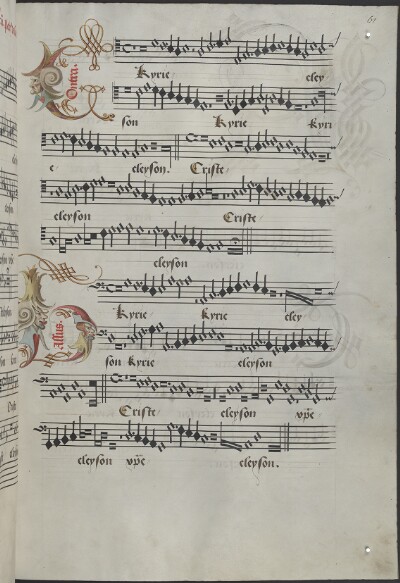 61
Contra.
Kyrie eley
son Kyrie Kyri
e eleyson. Criste
eleyson Criste
eleyson
Bassus.
Kyrie Kyrie eley
son Kyrie eleyson
Criste eleyson xp̄e
eleyson xp̄e eleyson.